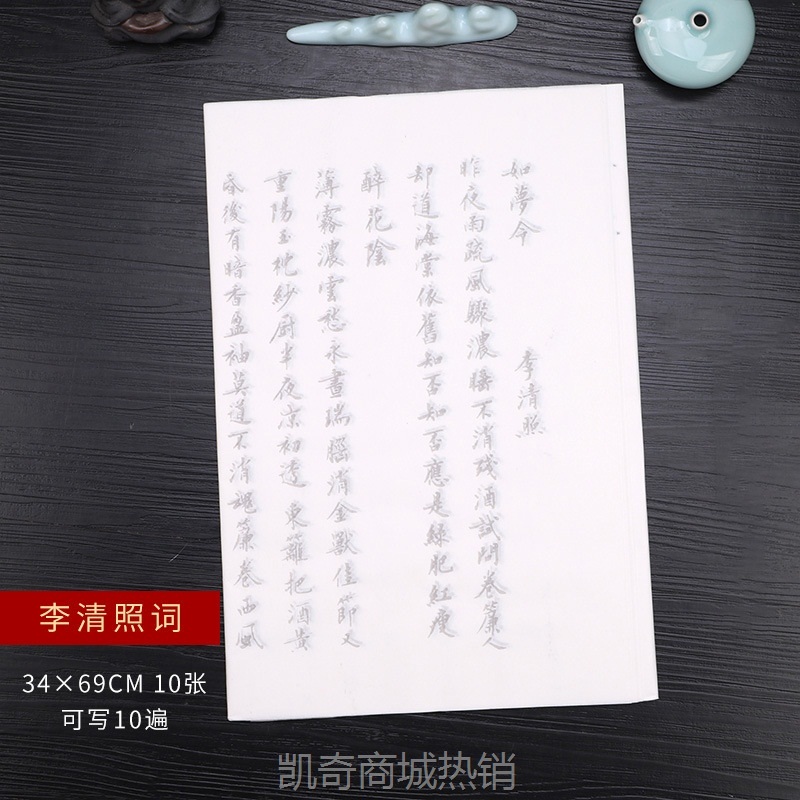 如夢令
李清照
昨夜雨疏風驟濃睡不消殘酒試問卷簾人
却道海棠依舊知否知否應是綠肥紅瘦
醉花陰
薄霧濃雲愁永晝瑞腦消金獸佳節又
重陽玉枕紗厨半夜凉初透 東籬把酒黄
昏後有暗香盈袖莫道不消魂簾卷西風
李清照词
34×69CM 10张
可写10遍
凯奇商城热销